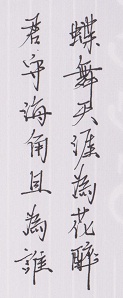 蝶舞天涯為花醉
君守海角且為誰